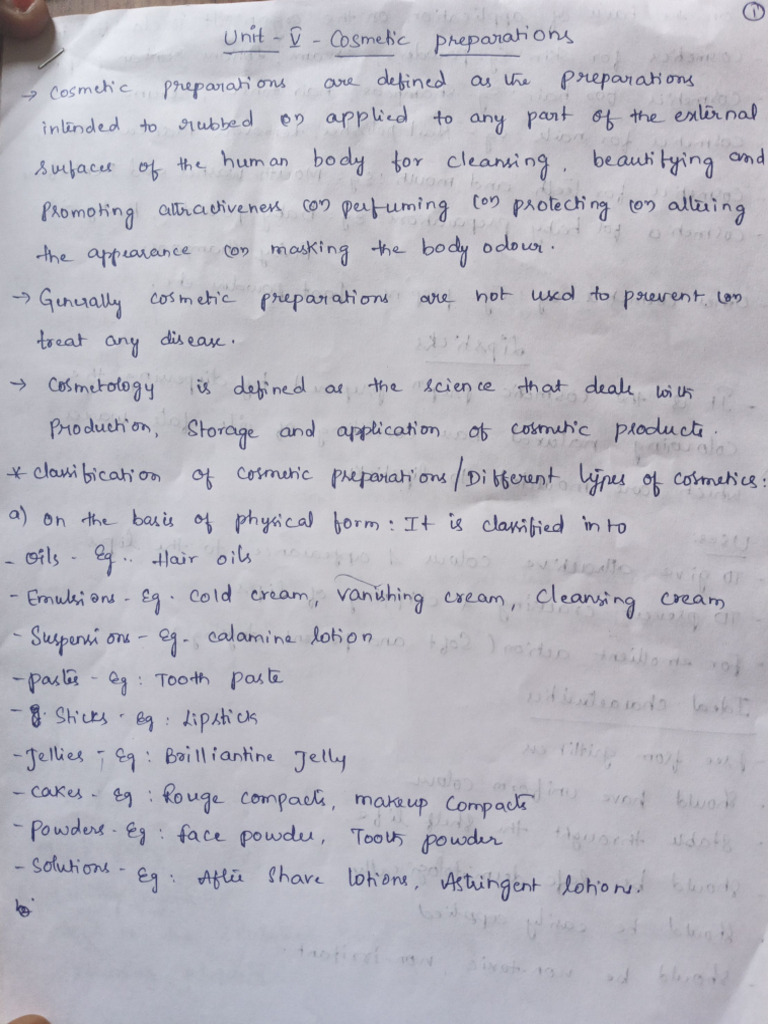 1
Unit - V - Cosmetic preparations
→ Cosmetic preparations are defined as the preparations
intended to rubbed (or) applied to any part of the external
surfaces of the human body for cleansing, beautifying and
Promoting attractiveness (or) perfuming (or) protecting (or) altering
the appearance (or) masking the body odour.
→ Generally cosmetic preparations are not used to prevent (or)
treat any disease.
→ Cosmetology is defined as the science that deals with
Production, Storage and application of cosmetic products.
* Classification of cosmetic preparations / Different types of cosmetics:
a) On the basis of physical form: It is classified in to
- Oils - Eg.. Hair oils
- Emulsions - Eg. Cold cream, Vanishing cream, Cleansing cream
- Suspensions - Eg. calamine lotion
- pastes - Eg: Tooth paste
- Sticks - Eg: Lipstick
- Jellies - Eg: Brilliantine Jelly
- Cakes - Eg: Rouge compacts, makeup compacts
- Powders - Eg: face powder, Tooth powder
- Solutions - Eg: After Shave lotions, Astringent lotions.